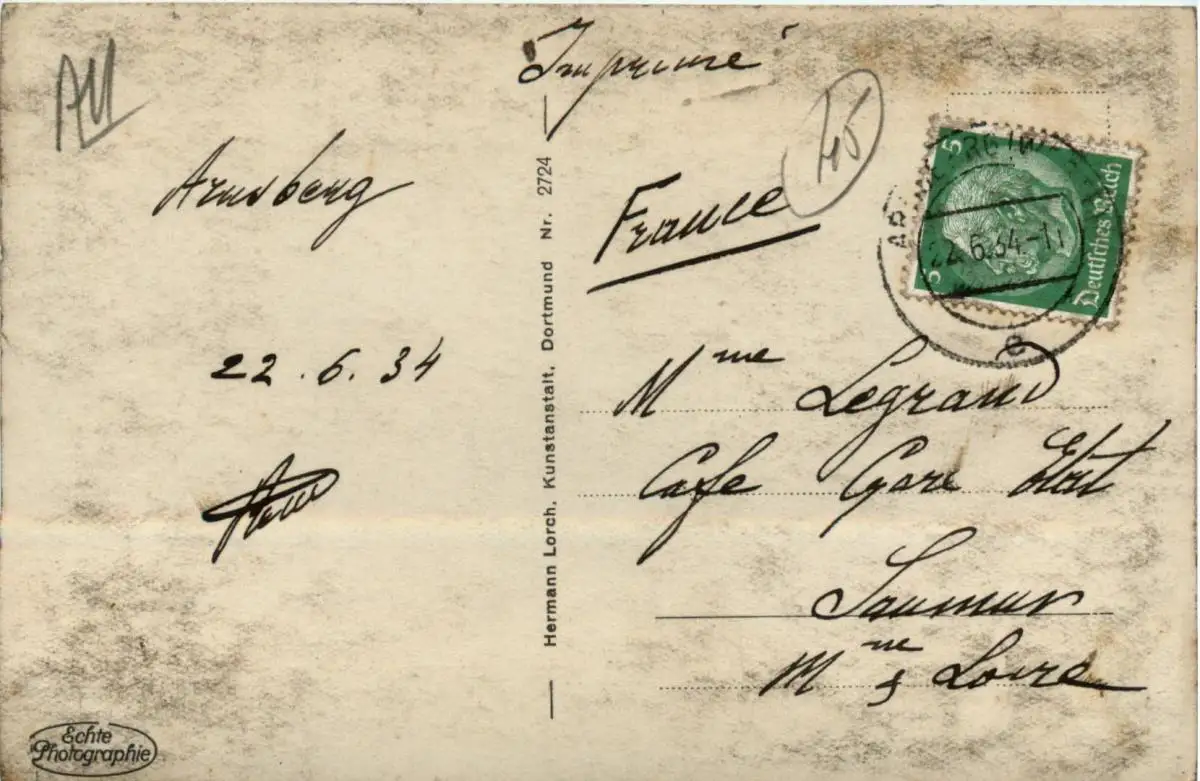 Imprimé
AU
Arnsberg
22.6.34
Hermann Lorch. Kunstanstalt, Dortmund Nr. 2724
France
5
5
Deutsches Reich
22.6.34-11
Mme Legrand
Cafe Gare Etat
Saumur
Mne & Loire
Echte
Photographie